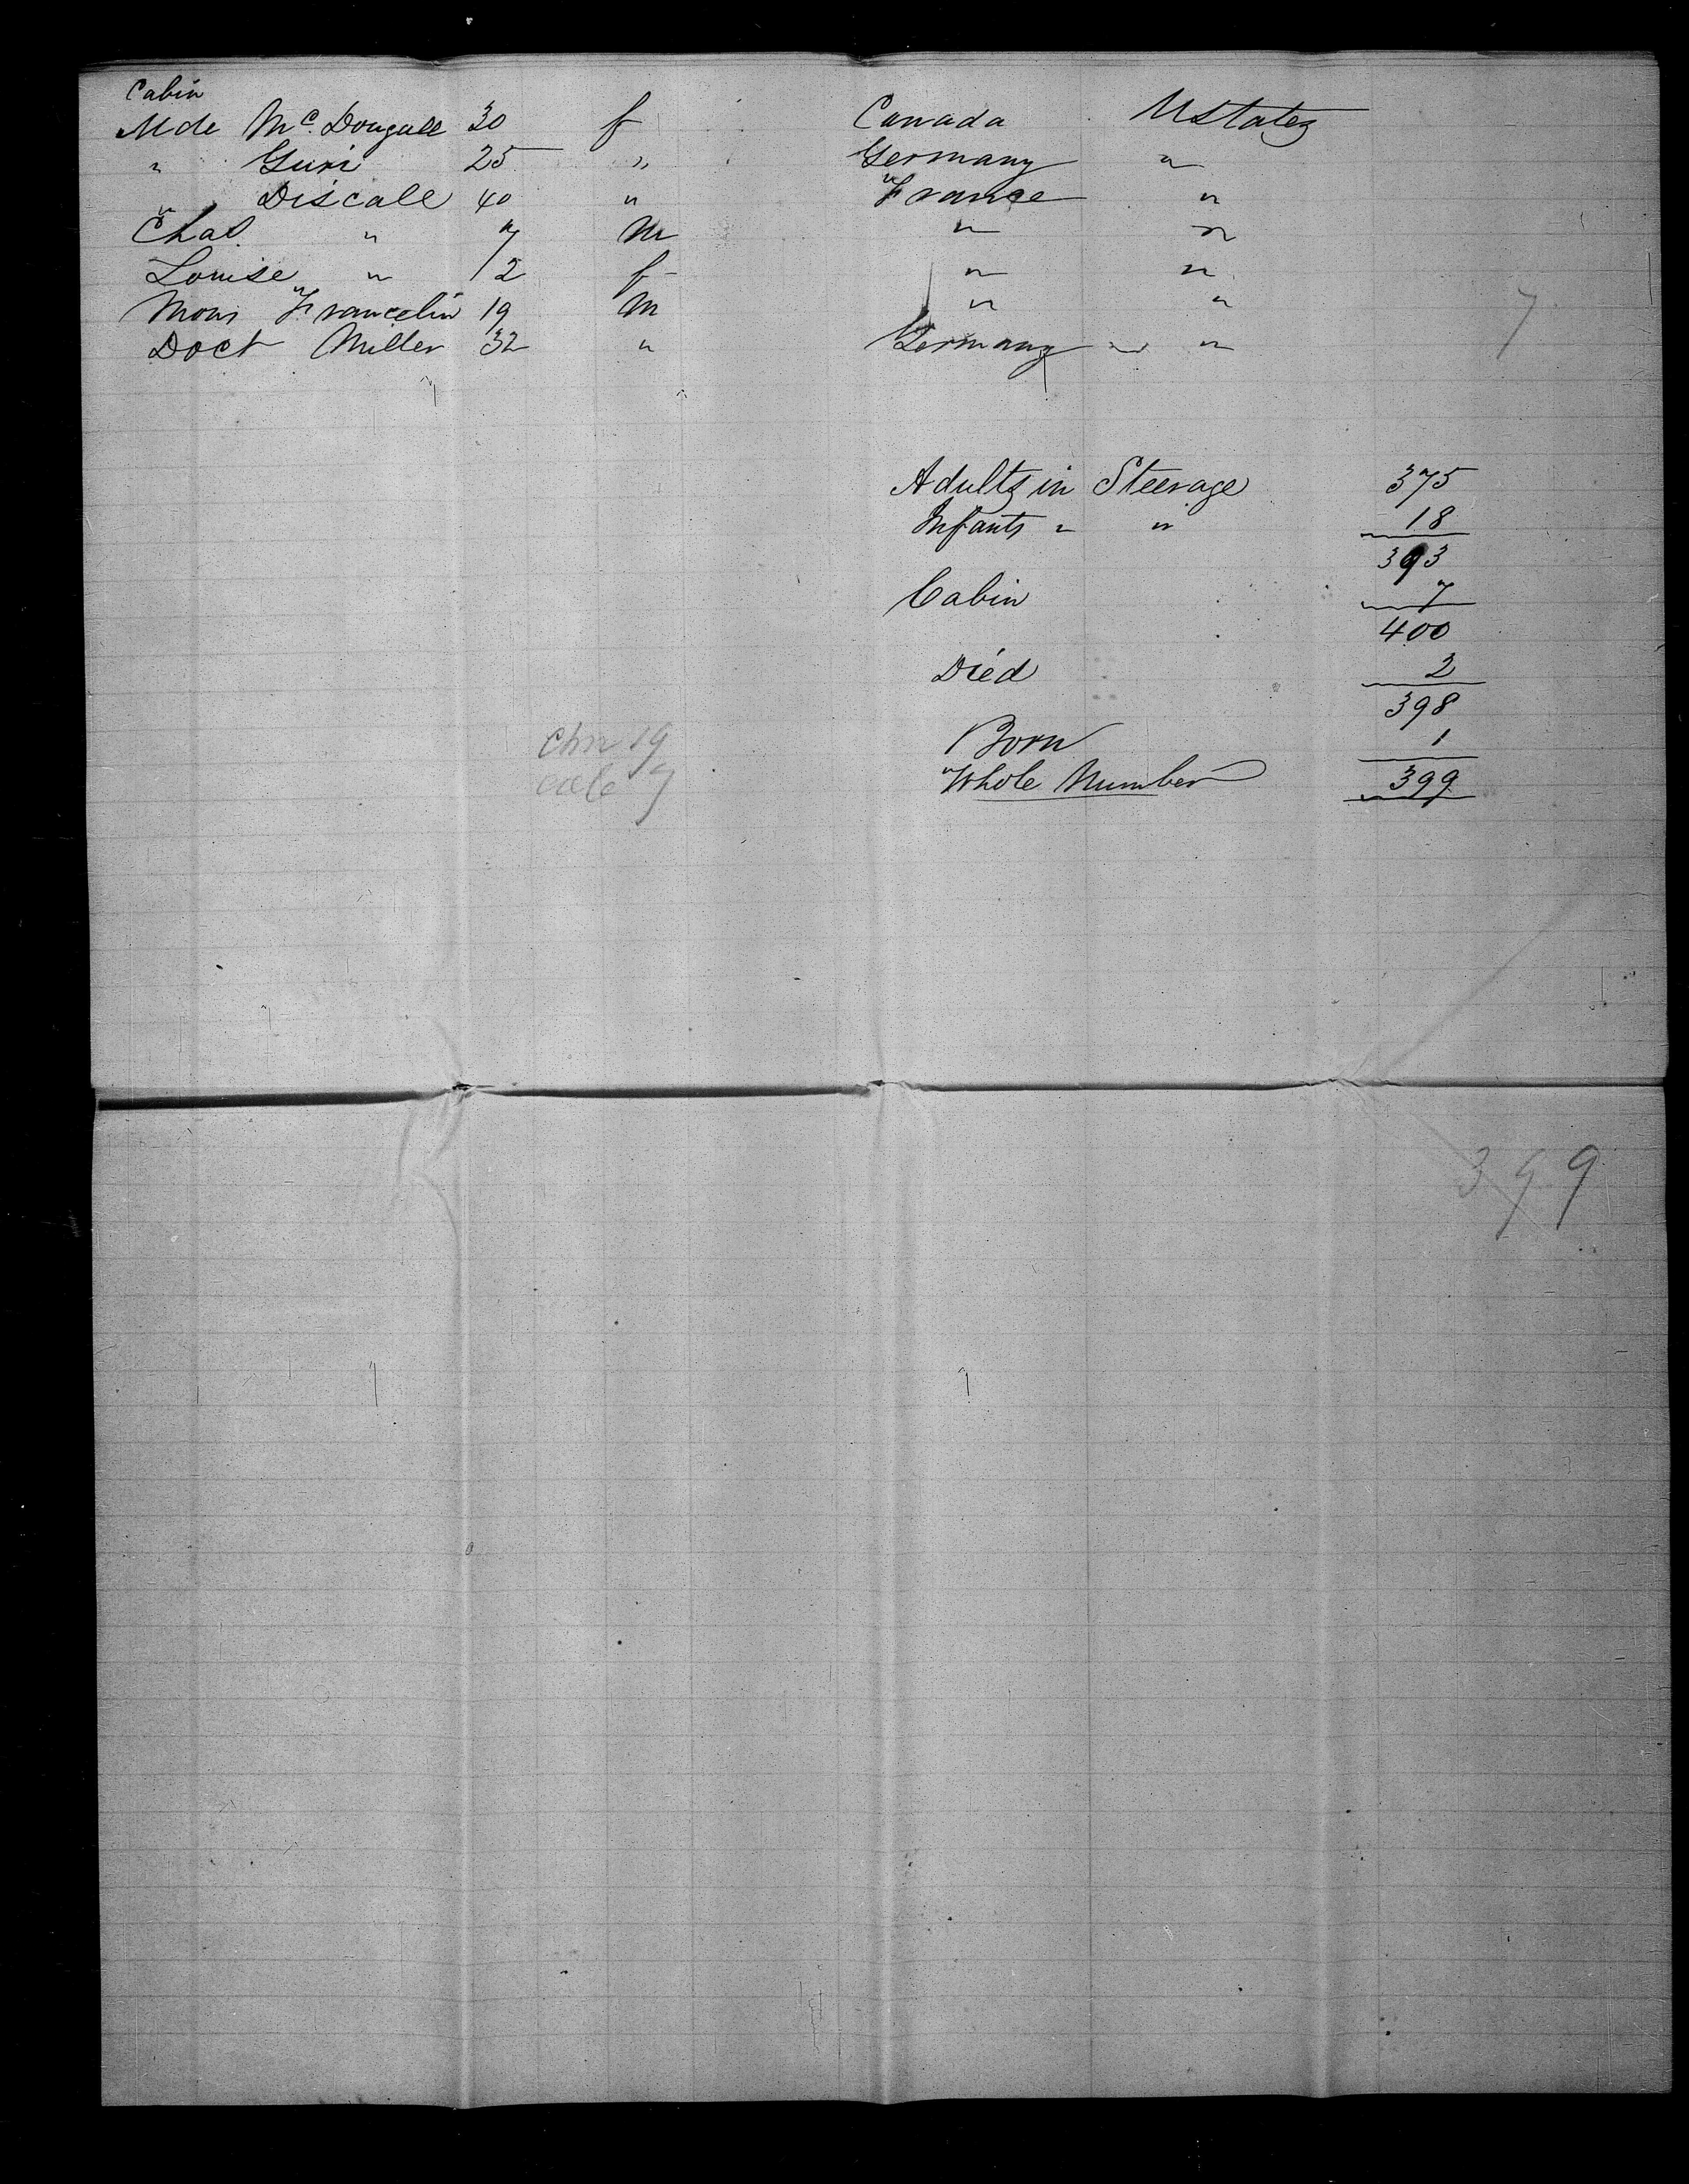 Cabin
Mde Mc. Dougall 30 f Canada UStates
" Guri 25 " Germany "
" Discall 40 " France "
Chas. " 7 M " "
Louise " 12 f " "
Mons Francelin 19 M " "
Doct Miller 32 " Germany " "
7
Adults in Steerage 375
Infants " " 18
393
Cabin 7
400
Died 2
398
Born 1
Whole Number 399
Chn 19
7
399